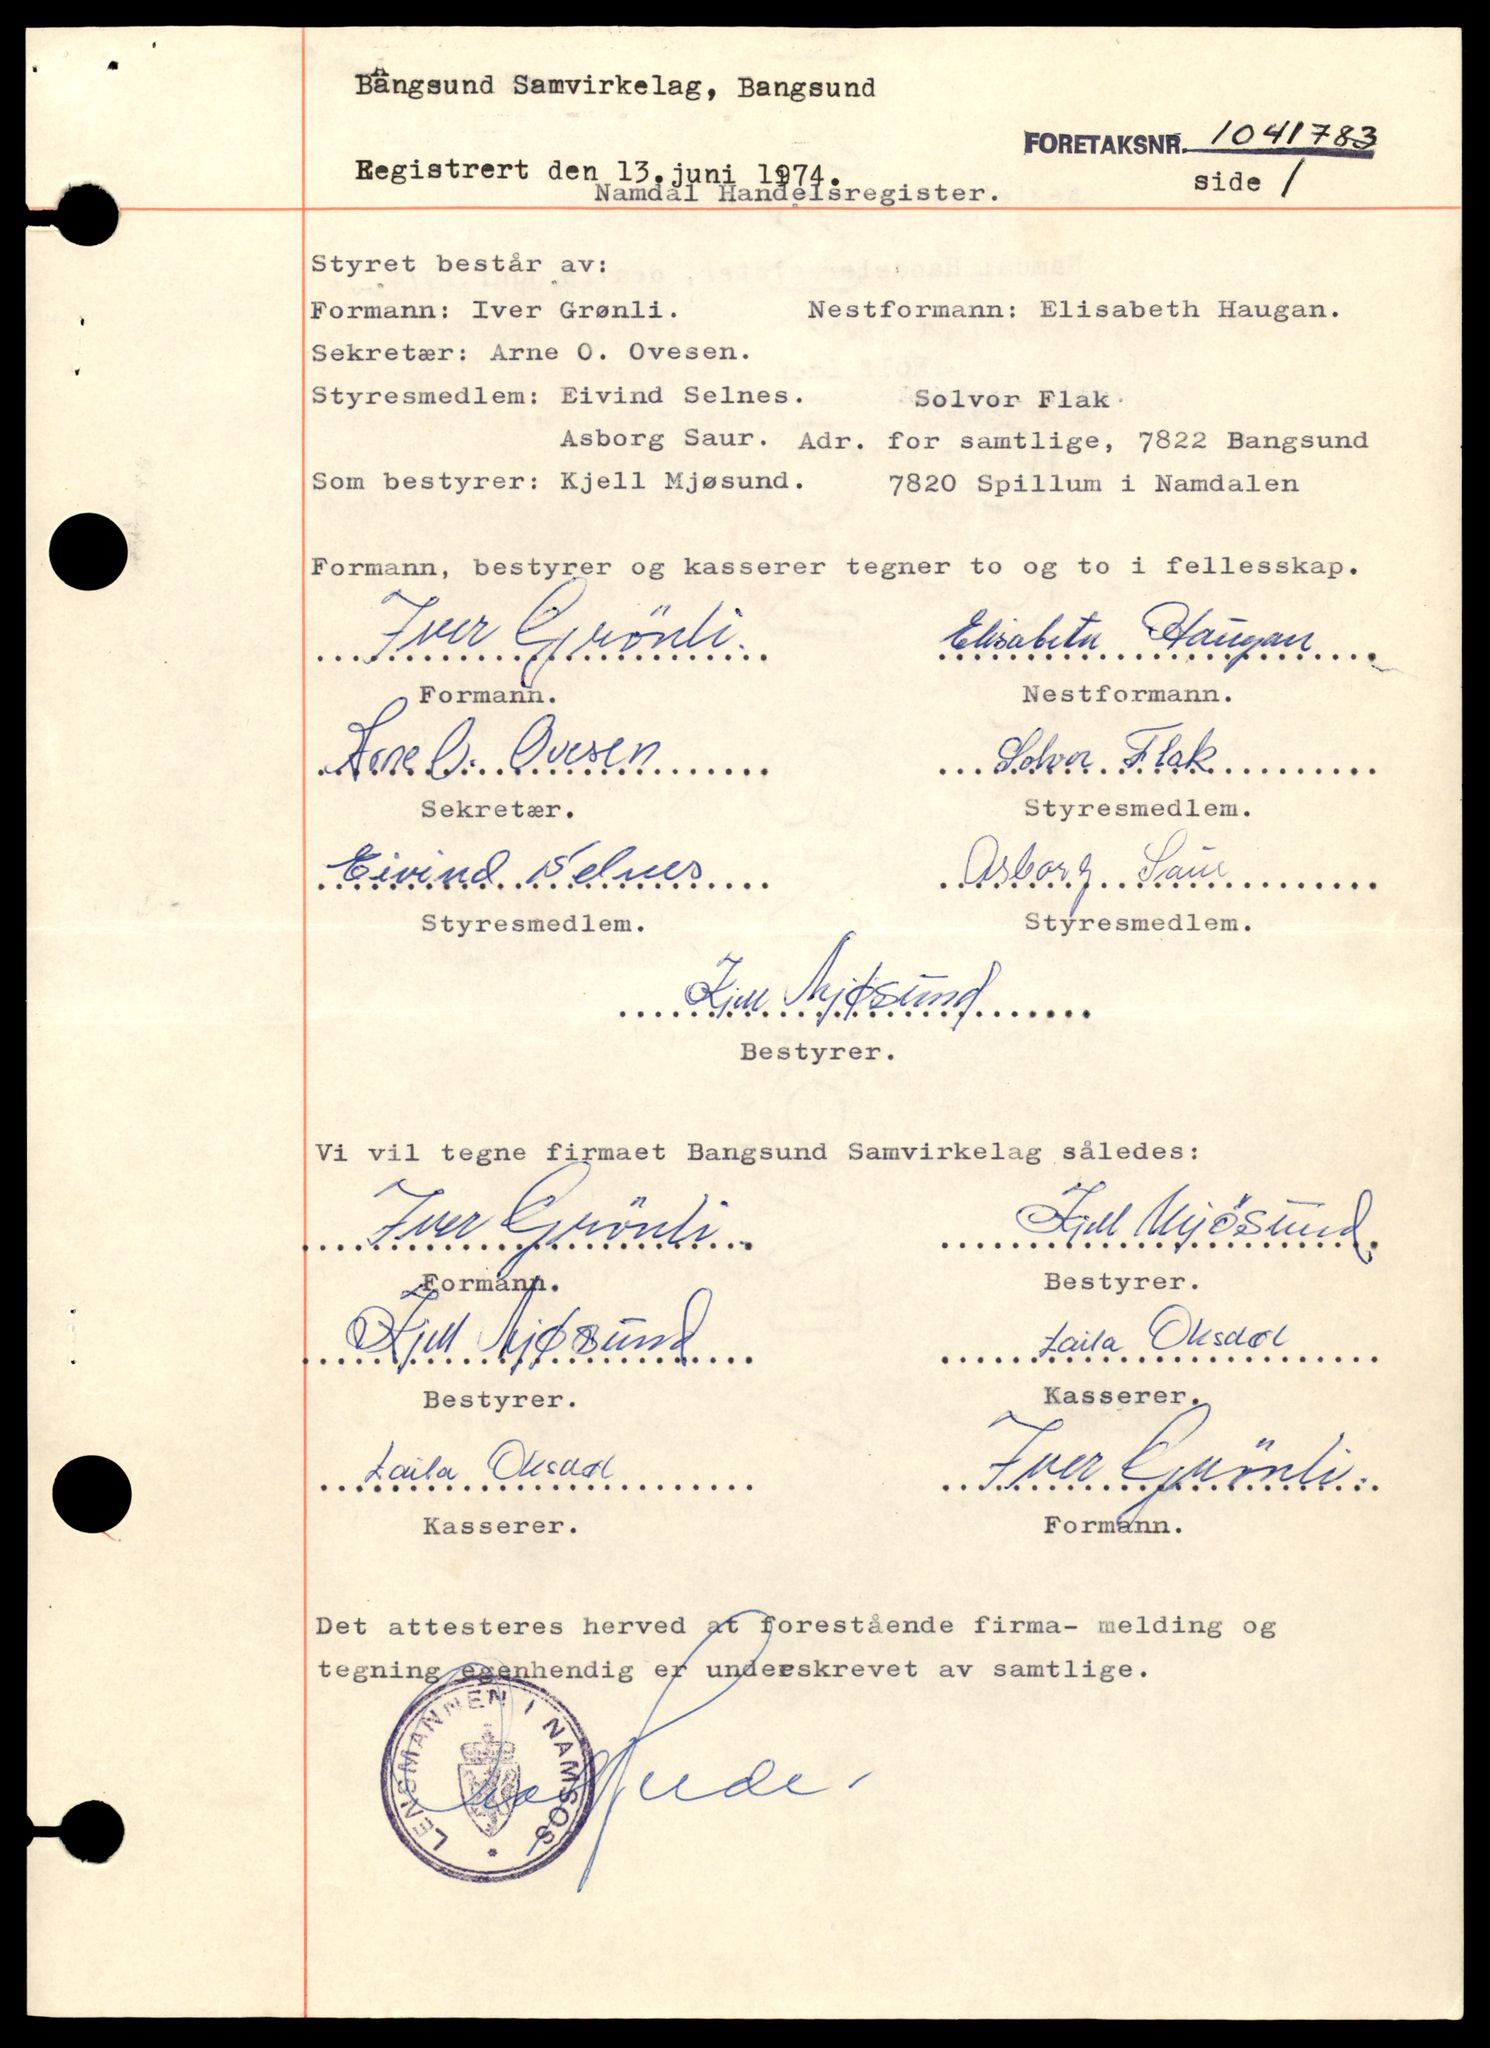 Bangsund Samvirkelag, Bangsund
FORETAKSNR. 1041783
Registrert den 13.juni 1974.
side 1
Namdal Handelsregister.
Styret består av:
Formann: Iver Grønli. Nestformann: Elisabeth Haugan.
Sekretær: Arne O. Ovesen.
Styresmedlem: Eivind Selnes. Solvor Flak
Asborg Saur. Adr. for samtlige, 7822 Bangsund
Som bestyrer: Kjell Mjøsund. 7820 Spillum i Namdalen
Formann, bestyrer og kasserer tegner to og to i fellesskap.
Iver Grönli. Elisabeth Haugan
Formann. Nestformann.
Arne O. Ovesen Solvor Flak
Sekretær. Styresmedlem.
Eivind Selnes Asborg Saur
Styresmedlem. Styresmedlem.
Kjell Mjøsund
Bestyrer.
Vi vil tegne firmaet Bangsund Samvirkelag således:
Iver Grönli. Kjell Mjösund
Formann. Bestyrer.
Kjell Mjøsund Laila Oksdøl
Bestyrer. Kasserer.
Laila Oksdøl Iver Grönli.
Kasserer. Formann.
Det attesteres herved at forestående firma- melding og
tegning egenhendig er underskrevet av samtlige.
LENSMANNEN I NAMSOS